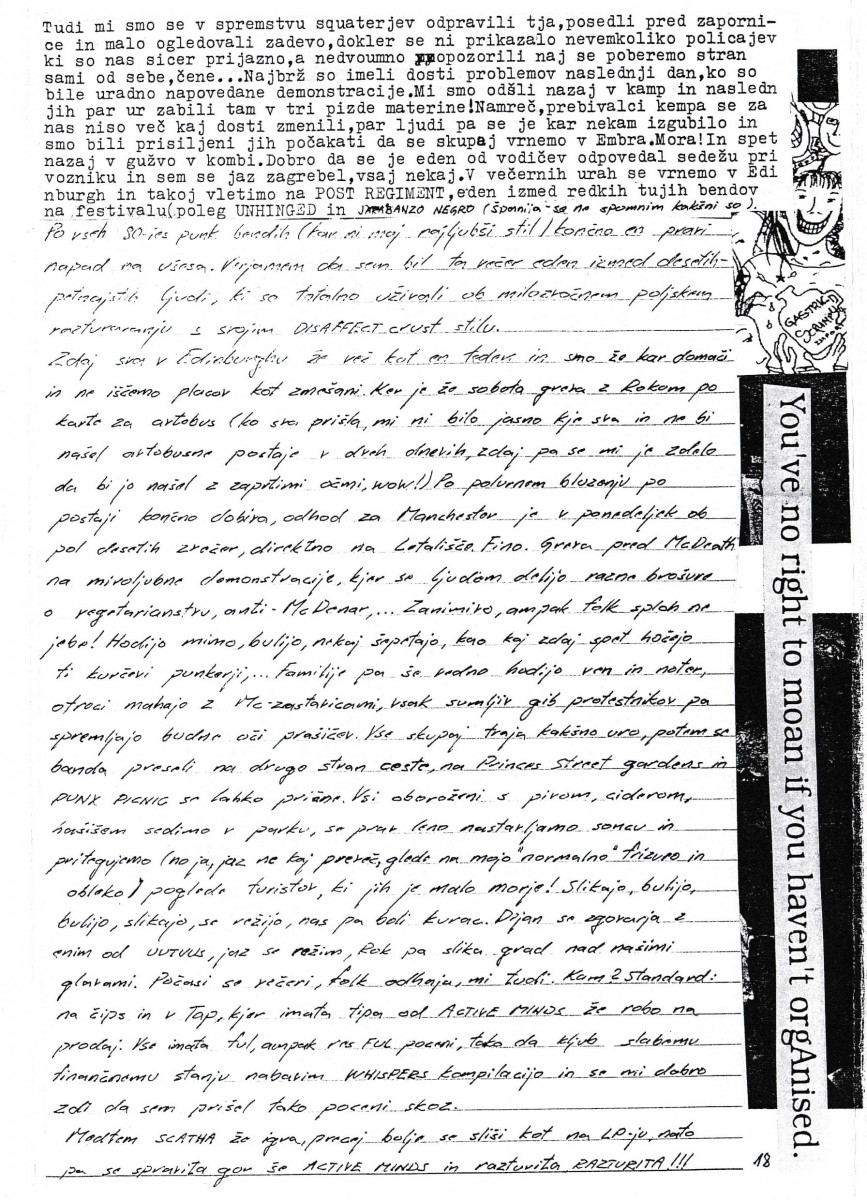 Tudi mi smo se v spremstvu squaterjev odpravili tja,posedli pred zaporni-
ce in malo ogledovali zadevo,dokler se ni prikazalo nevemkoliko policajev
ki so nas sicer prijazno,a nedvoumno opozorili naj se poberemo stran
sami od sebe,čene...Najbrž so imeli dosti problemov naslednji dan,ko so
bile uradno napovedane demonstracije.Mi smo odšli nazaj v kamp in nasledn
jih par ur zabili tam v tri pizde materine!Namreč,prebivalci kempa se za
nas niso več kaj dosti zmenili,par ljudi pa se je kar nekam izgubilo in
smo bili prisiljeni jih počakati da se skupaj vrnemo v Embra.Mora!In spet
nazaj v gužvo v kombi.Dobro da se je eden od vodičev odpovedal sedežu pri
vozniku in sem se jaz zagrebel,vsaj nekaj.V večernih urah se vrnemo v Edi
nburgh in takoj vletimo na POST REGIMENT,eden izmed redkih tujih bendov
na festivalu(poleg UNHINGED in NEGRO (Španija-se ne spomnim kakšni so).
Po vseh 80-ies punk bendih (kar ni moj najljubši stil) končno en pravi
napad na ušesa. Verjamem da sem bil ta večer eden izmed desetih-
petnajstih ljudi, ki so totalno uživali ob milozvočnem poljskem
razturavanju s svojim DISAFFECT crust stilu.
Zdaj sva v Edinburghu že več kot en teden in smo že kar domači
in ne iščemo placov kot zmešani. Ker je že sobota greva z Rokom po
karte za avtobus (ko sva prišla, mi ni bilo jasno kje sva in ne bi
našel avtobusne postaje v dveh dnevih, zdaj pa se mi je zdelo
da bi jo našel z zaprtimi očmi, wow!) Po polurnem bluzenju po
postaji končno dobiva, odhod za Manchester je v ponedeljek ob
pol desetih zvečer, direktno na Letališče. Fino. Greva pred McDeath
na miroljubne demonstracije, kjer se ljudem delijo razne brošure
o vegetarianstvu, anti-McDenar,... Zanimivo, ampak folk sploh ne
jebe! Hodijo mimo, bulijo, nekaj šepetajo, kao kaj zdaj spet hočejo
ti kurčevi punkerji,... Familije pa še vedno hodijo ven in noter,
otroci mahajo z Mc-zastavicami, vsak sumljiv gib protestnikov pa
spremljajo budne oči prašičev. Vse skupaj traja kakšno uro, potem se
banda preseli na drugo stran ceste, na Princes Street gardens in
PUNX PICNIC se lahko prične. Vsi oboroženi s pivom, ciderom,
hašišem sedimo v parku, se prav leno nastavljamo soncu in
pritegujemo (no ja, jaz ne kaj preveč, glede na mojo "normalno" frizuro in
obleko) poglede turistov, ki jih je malo morje! Slikajo, bulijo,
bulijo, slikajo, se režijo, nas pa boli kurac. Dijan se zgovarja z
enim od jaz se režim, Rok pa slika grad nad našimi
glavami. Počasi se večeri, folk odhaja, mi tudi. Kam? Standard:
na čips in v Tap, kjer imata tipa od ACTIVE MINDS že robo na
prodaj. Vse imata ful, ampak res FUL poceni, tako da kljub slabemu
finančnemu stanju nabavim WHISPERS kompilacijo in se mi dobro
zdi da sem prišel tako poceni skoz.
Medtem SCATHA že igra, precej bolje se sliši kot na LP-ju, nato
pa se spravita gor še ACTIVE MINDS in razturita RAZTURITA!!!
18
GASTRIC
You've no right to moan if you haven't orgAnised.